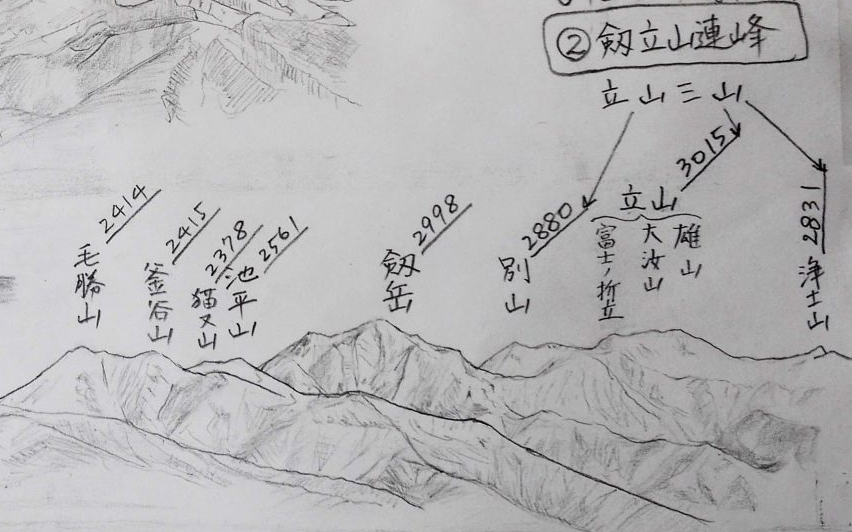 ②剱立山連峰
立山三山
2414
毛勝山
2415
釜谷山
2378
猫又山
2561
池平山
2998
剱岳
2880
別山
3015
立山
富士ノ折立
大汝山
雄山
2831
浄土山